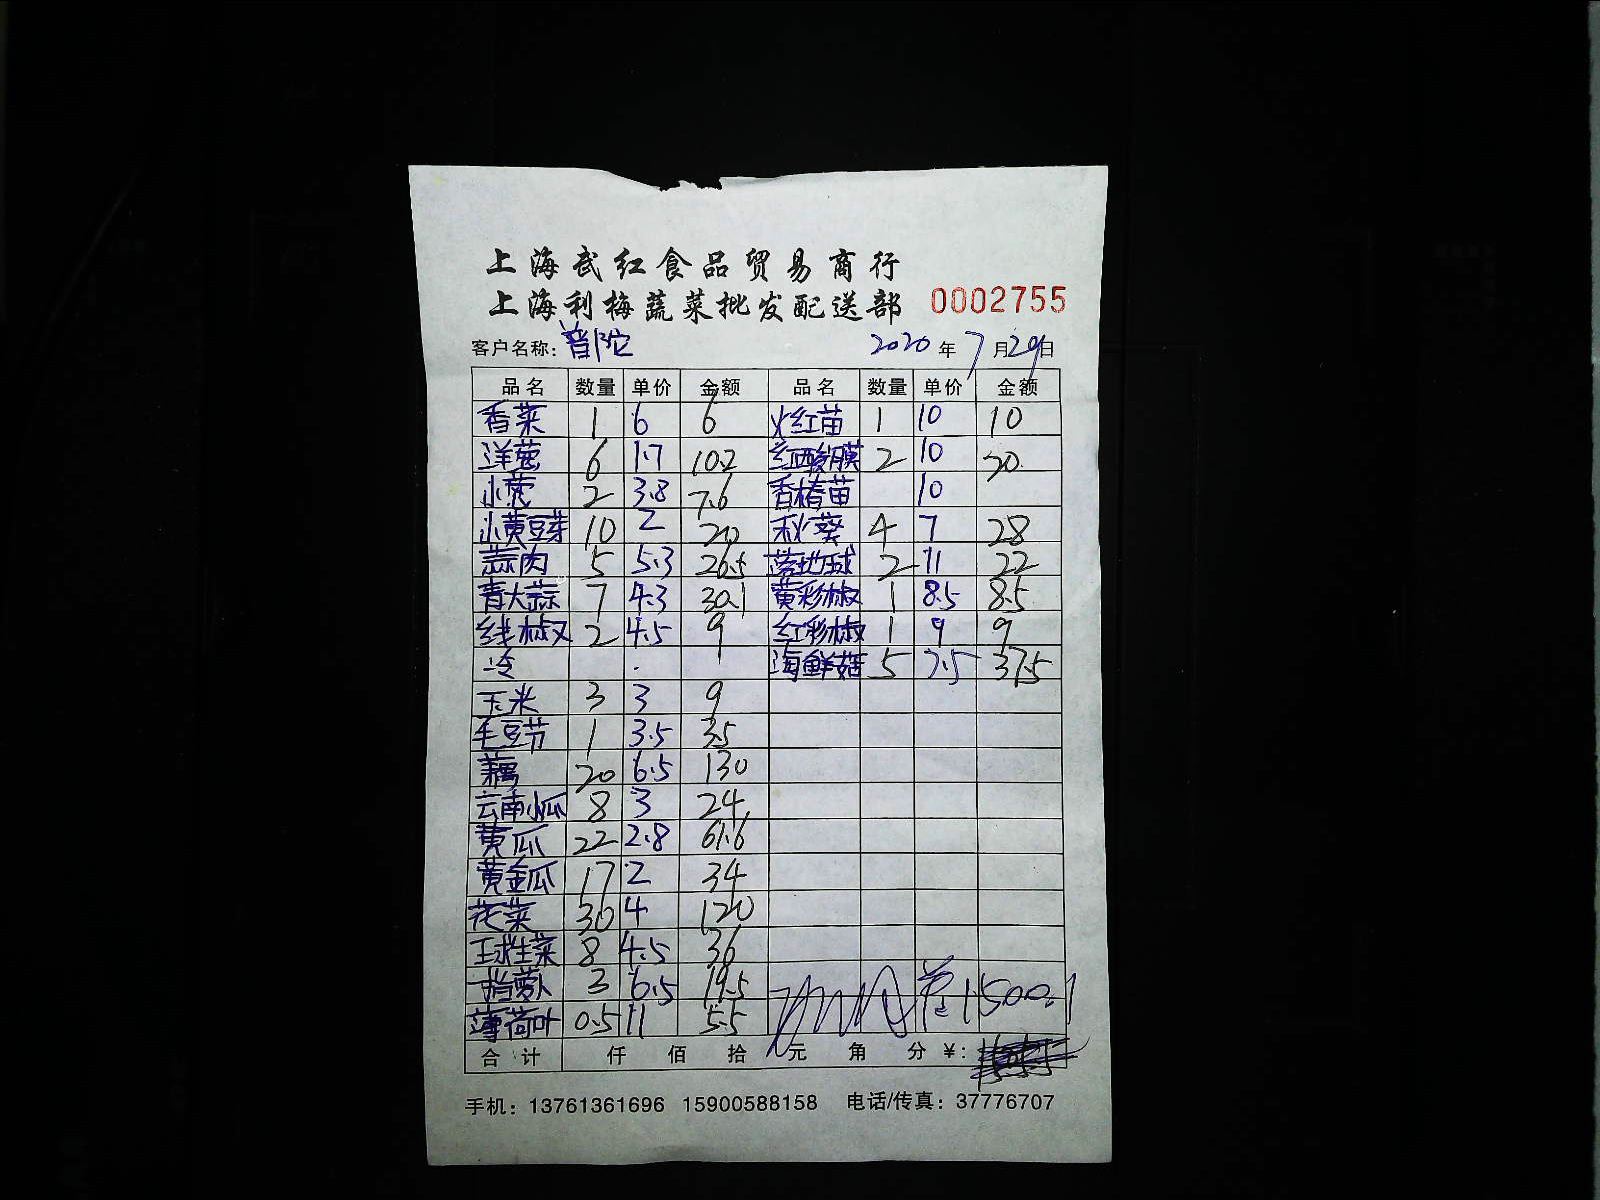 上海武红食品贸易商行
上海利梅蔬菜批发配送部 0002755
客户名称: 普陀 2020 年 7 月 29 日
品名 数量 单价 金额 品名 数量 单价 金额
香菜 1 6 6 火红苗 1 10 10
洋葱 6 1.7 10.2 红酸膜 2 10 20
小葱 2 3.8 7.6 香椿苗 10
小黄豆芽 10 2 20 秋葵 4 7 28
蒜肉 5 5.3 26.5 落地球 2 11 22
青大蒜 7 4.3 30.1 黄彩椒 1 8.5 8.5
线椒 2 4.5 9 红彩椒 1 9 9
冷 海鲜菇 5 7.5 37.5
玉米 3 3 9
毛豆节 1 3.5 3.5
藕 20 6.5 130
云南小瓜 8 3 24
黄瓜 22 2.8 61.6
黄金瓜 17 2 34
花菜 30 4 120
王球生菜 8 4.5 36
手指萝卜 3 6.5 19.5
薄荷叶 0.5 11 5.5
合计 仟 佰 拾 元 角 分 ¥:
手机: 13761361696 15900588158 电话/传真: 37776707